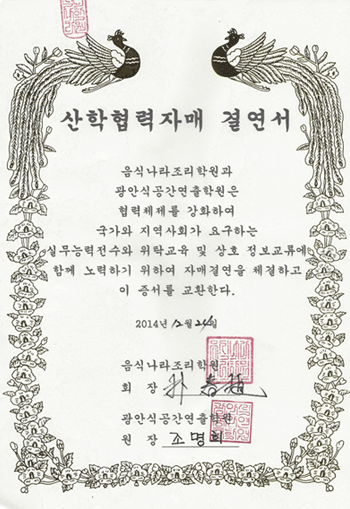 산학협력자매 결연서
음식나라조리학원과
광안식공간연출학원은
협력체제를 강화하여
국가와 지역사회가 요구하는
실무능력전수와 위탁교육 및 상호 정보교류에
함께 노력하기 위하여 자매결연을 체결하고
이 증서를 교환한다.
2014년 12월 24일
음식나라조리학원
회 장
광안식공간연출학원
원 장 조명희